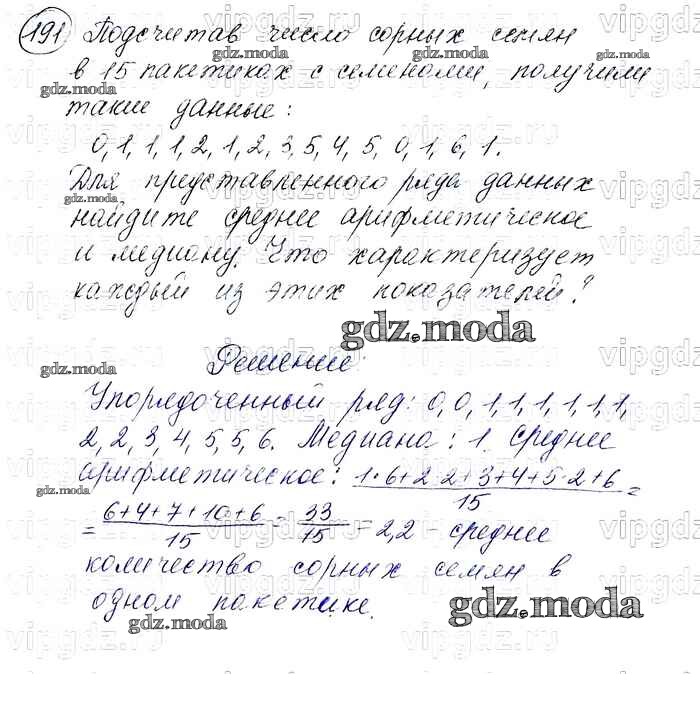 191 Подсчитав число сорных семян
в 15 пакетиках с семенами, получили
такие данные:
0, 1, 1, 1, 2, 1, 2, 3, 5, 4, 5, 0, 1, 6, 1.
Для представленного ряда данных
найдите среднее арифметическое
и медиану. Что характеризует
каждый из этих показателей?
Решение:
Упорядоченный ряд: 0, 0, 1, 1, 1, 1, 1, 1,
2, 2, 3, 4, 5, 5, 6. Медиана: 1. Среднее
арифметическое: (1·6+2·2+3+4+5·2+6)/15 =
= (6+4+7+10+6)/15 = 33/15 = 2,2 - среднее
количество сорных семян в
одном пакетике.
gdz.moda
vipgdz.ru